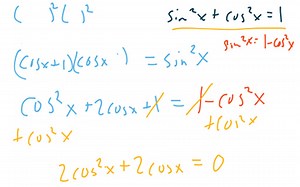 (  )² (  )²
sin²x + cos²x = 1
sin²x = 1-cos²x
(cosx+1)(cosx ) = sin²x
cos²x + 2cosx + 1 = 1 - cos²x
+cos²x +cos²x
2cos²x + 2cosx = 0